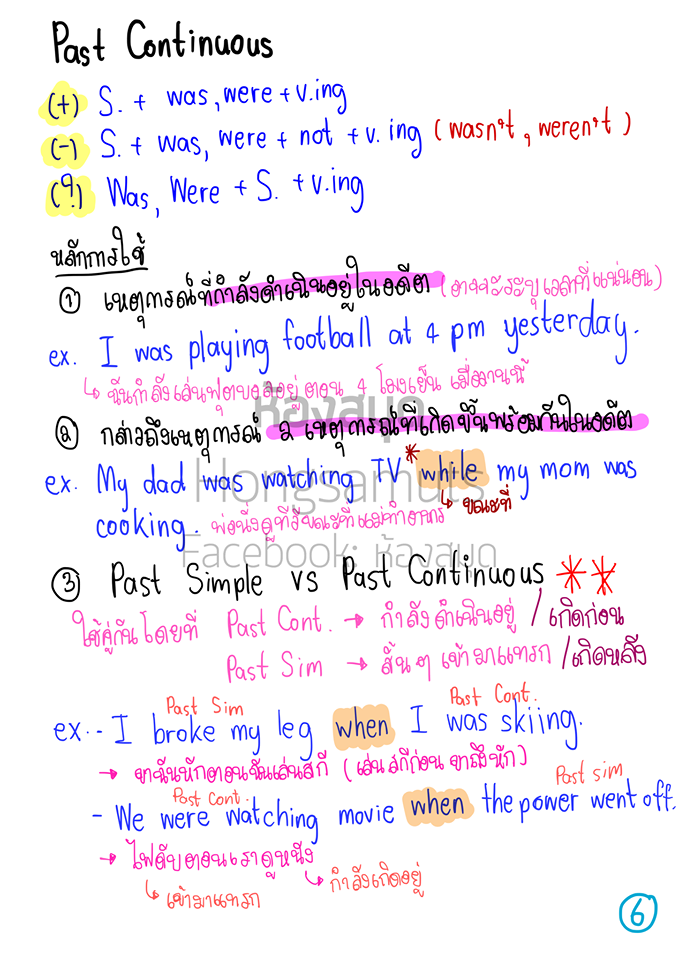 Past Continuous
(+) S. + was, were + v.ing
(-) S. + was, were + not + v. ing (wasn't, weren't)
(?) Was, Were + S. + v.ing
หลักการใช้
① เหตุการณ์ที่กำลังดำเนินอยู่ในอดีต (อาจจะระบุเวลาที่แน่นอน)
ex. I was playing football at 4 pm yesterday.
↳ ฉันกำลังเล่นฟุตบอลอยู่ตอน 4 โมงเย็น เมื่อวานนี้
ห้องสมุด
② กล่าวถึงเหตุการณ์ 2 เหตุการณ์ที่เกิดขึ้นพร้อมกันในอดีต
ex. My dad was watching TV * while my mom was
Hongsamuts
↳ ขณะที่
cooking. พ่อนั่งดูทีวีขณะที่แม่ทำอาหาร
Facebook: ห้องสมุด
③ Past Simple vs Past Continuous **
ใช้คู่กันโดยที่ Past Cont. → กำลังดำเนินอยู่ / เกิดก่อน
Past Sim → สั้นๆ เข้ามาแทรก / เกิดหลัง
Past Sim Past Cont.
ex. - I broke my leg when I was skiing.
→ ขาฉันหักตอนฉันเล่นสกี (เล่นสกีก่อน ขาถึงหัก)
Past Cont. Past sim
- We were watching movie when the power went off.
→ ไฟดับตอนเราดูหนัง
↳ เข้ามาแทรก ↳ กำลังเกิดอยู่
6